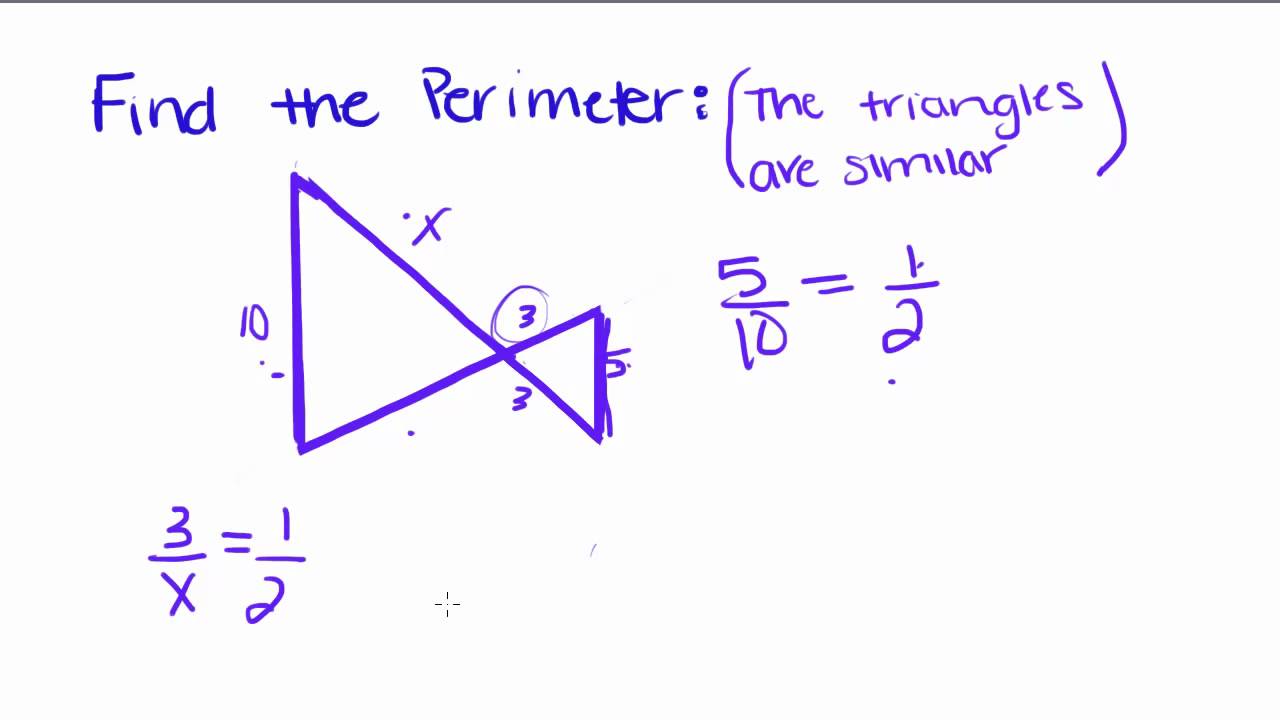 Find the Perimeter: (The triangles
are similar)
x
10
3
5
3
5/10 = 1/2
3/x = 1/2